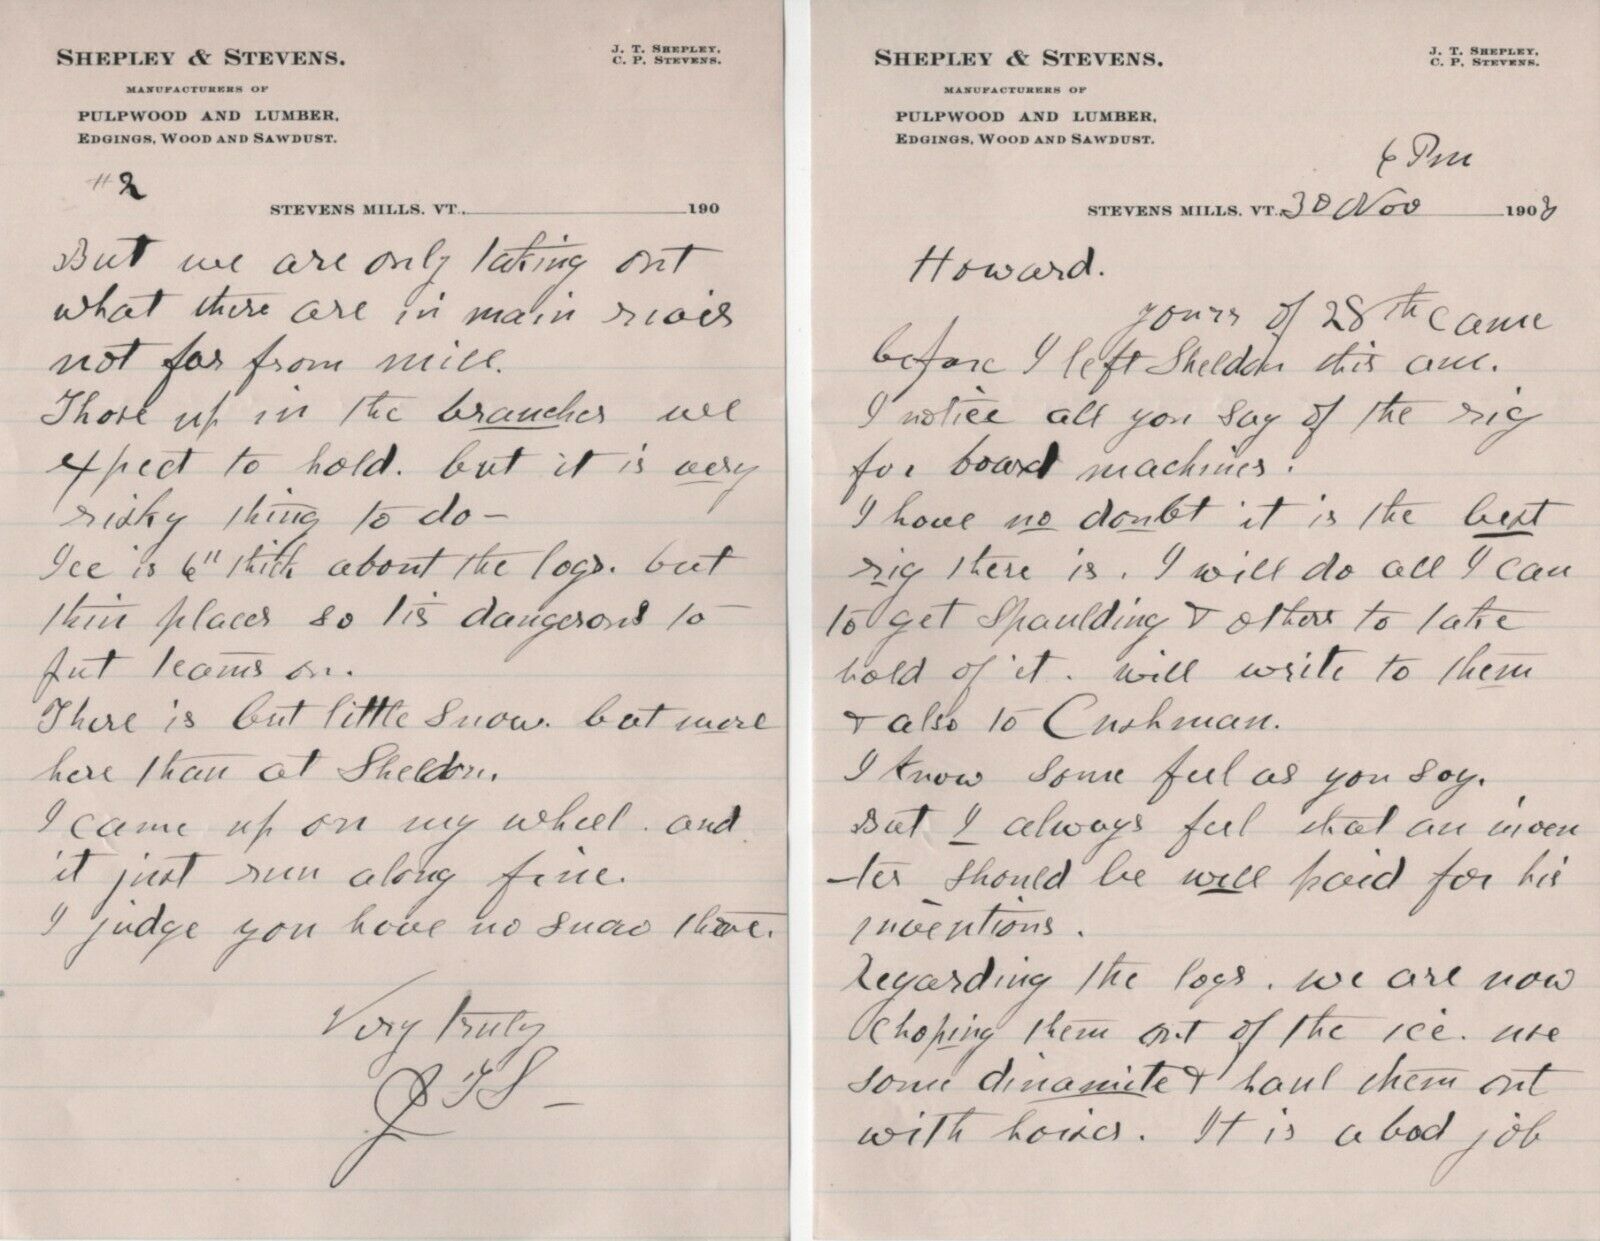 SHEPLEY & STEVENS.
J. T. SHEPLEY,
C. P. STEVENS.
MANUFACTURERS OF
PULPWOOD AND LUMBER,
EDGINGS, WOOD AND SAWDUST.
6 Pm
STEVENS MILLS, VT., 30 Nov 1908
Howard.
yours of 28th came
before I left Sheldon this am.
I notice all you say of the rig
for board machines.
I have no doubt it is the best
rig there is. I will do all I can
to get Spaulding & others to take
hold of it. will write to them
& also to Cushman.
I know some feel as you say.
But I always feel that an inven
-ter should be well paid for his
inventions.
Regarding the logs. we are now
choping them out of the ice. use
some dinamite & haul them out
with horses. It is a bad job
SHEPLEY & STEVENS.
J. T. SHEPLEY,
C. P. STEVENS.
MANUFACTURERS OF
PULPWOOD AND LUMBER,
EDGINGS, WOOD AND SAWDUST.
#2
STEVENS MILLS, VT., 190
But we are only taking out
what there are in main
not far from mill.
Those up in the branches we
expect to hold. but it is very
risky thing to do-
Ice is 6" thick about the logs. but
thin places so tis dangerous to
put teams on.
There is but little snow. but more
here than at Sheldon.
I came up on my wheel. and
it just run along fine.
I judge you have no snow there.
Very truly
JTS-